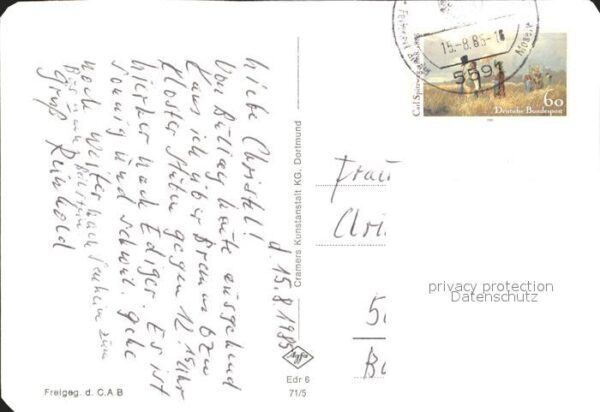 d. 15.8.1985
Liebe Christel!
Von Bullay heute ausgehend
kam ich über Bremm bzw
Kloster Stuben gegen 12.15 Uhr
hierher nach Ediger. Es ist
sonnig und schwül. gehe
noch weiter nach Senheim zum
Gruß Reinhold
Freigeg. d. C.A.B
Cramers Kunstanstalt KG, Dortmund
Agfa
Edr 6
71/5
15.-8.85-18
5591
Carl Spitzweg
60
Deutsche Bundespost
Frau
Chris
privacy protection
Datenschutz